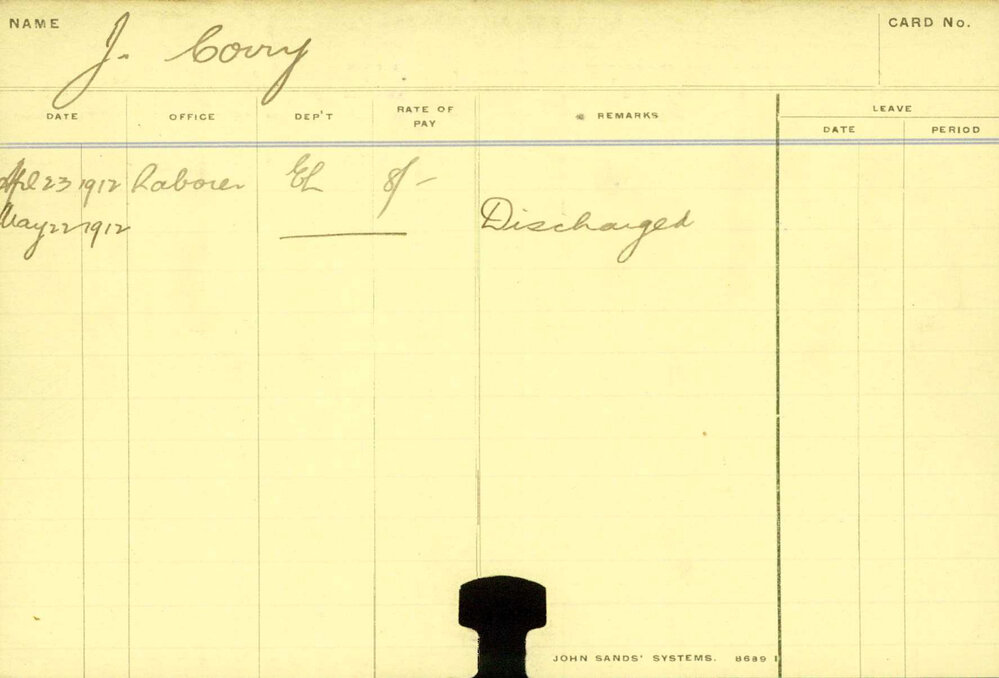 NAME J. Corry CARD No.
DATE OFFICE DEP'T RATE OF PAY REMARKS LEAVE
DATE PERIOD
Apl 23 1912 Laborer EL 8/-
May 22 1912 Discharged
JOHN SANDS' SYSTEMS. 8689 1